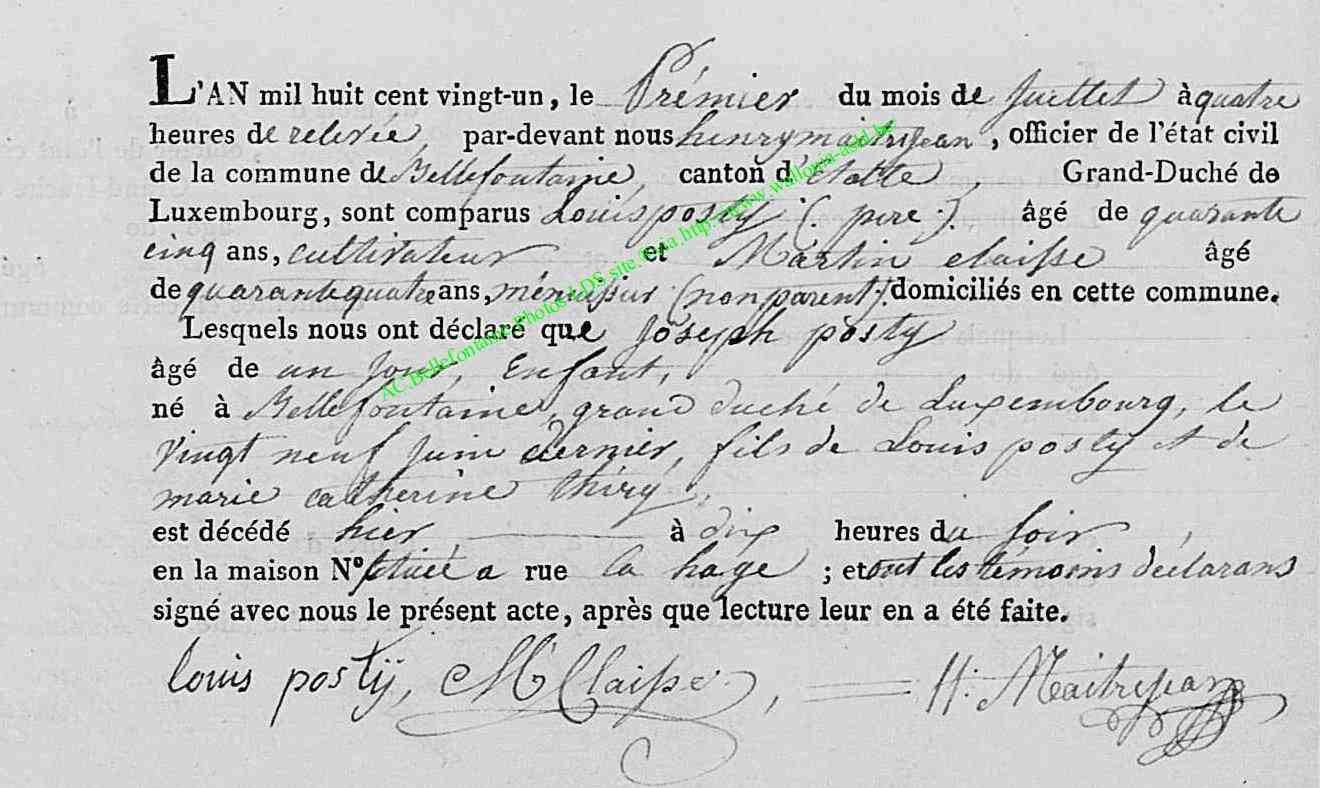 L'AN mil huit cent vingt-un, le Prémier du mois de Juillet à quatre
heures de relevée, par-devant nous henry maitrejean, officier de l'état civil
de la commune de Bellefontaine, canton d'Etalle, Grand-Duché de
Luxembourg, sont comparus Louis posty (: pere :) âgé de quarante
cinq ans, cultivateur et Martin claisse âgé
de quarante quatre ans, ménuisier (non parent) domiciliés en cette commune.
Lesquels nous ont déclaré que Joseph posty
âgé de un Jour, Enfant,
né à Bellefontaine, grand duché de Luxembourg, le
vingt neuf Juin dernier, fils de Louis posty et de
marie catherine thiry,
est décédé hier, à dix heures du soir,
en la maison N° située a rue la hage ; et ont les témoins déclarans
signé avec nous le présent acte, après que lecture leur en a été faite.
louis postÿ, M Claisse, H: Maitrejean
AC.Bellefontaine.Photos.LDS.site.Gata.http://www.wallonia-asbl.be